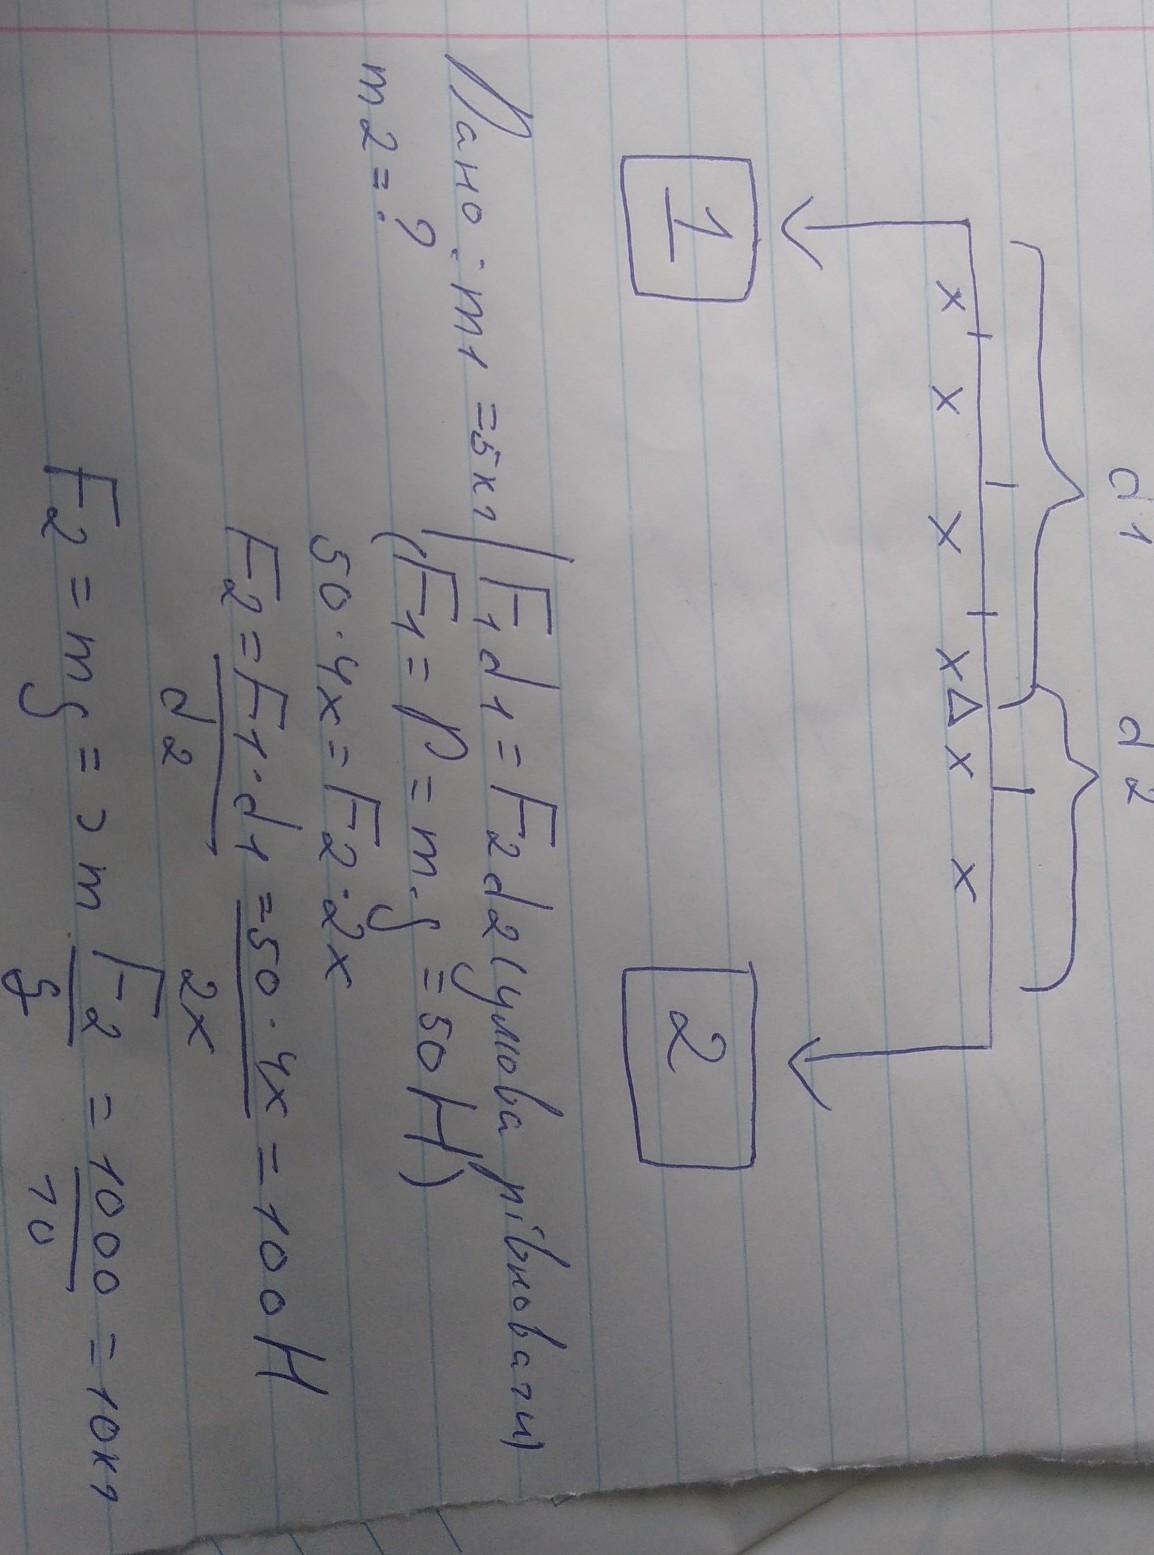 d1 d2
x x x x Δ x x
1 2
Дано: m1 = 5кг | F1d1 = F2d2 (умова рівноваги)
m2 = ? (F1 = P = m·g = 50 Н)
50 · 4x = F2 · 2x
F2 = F1·d1 = 50 · 4x = 100 Н
d2 2x
F2 = mg => m F2 = 1000 = 10кг
g 10